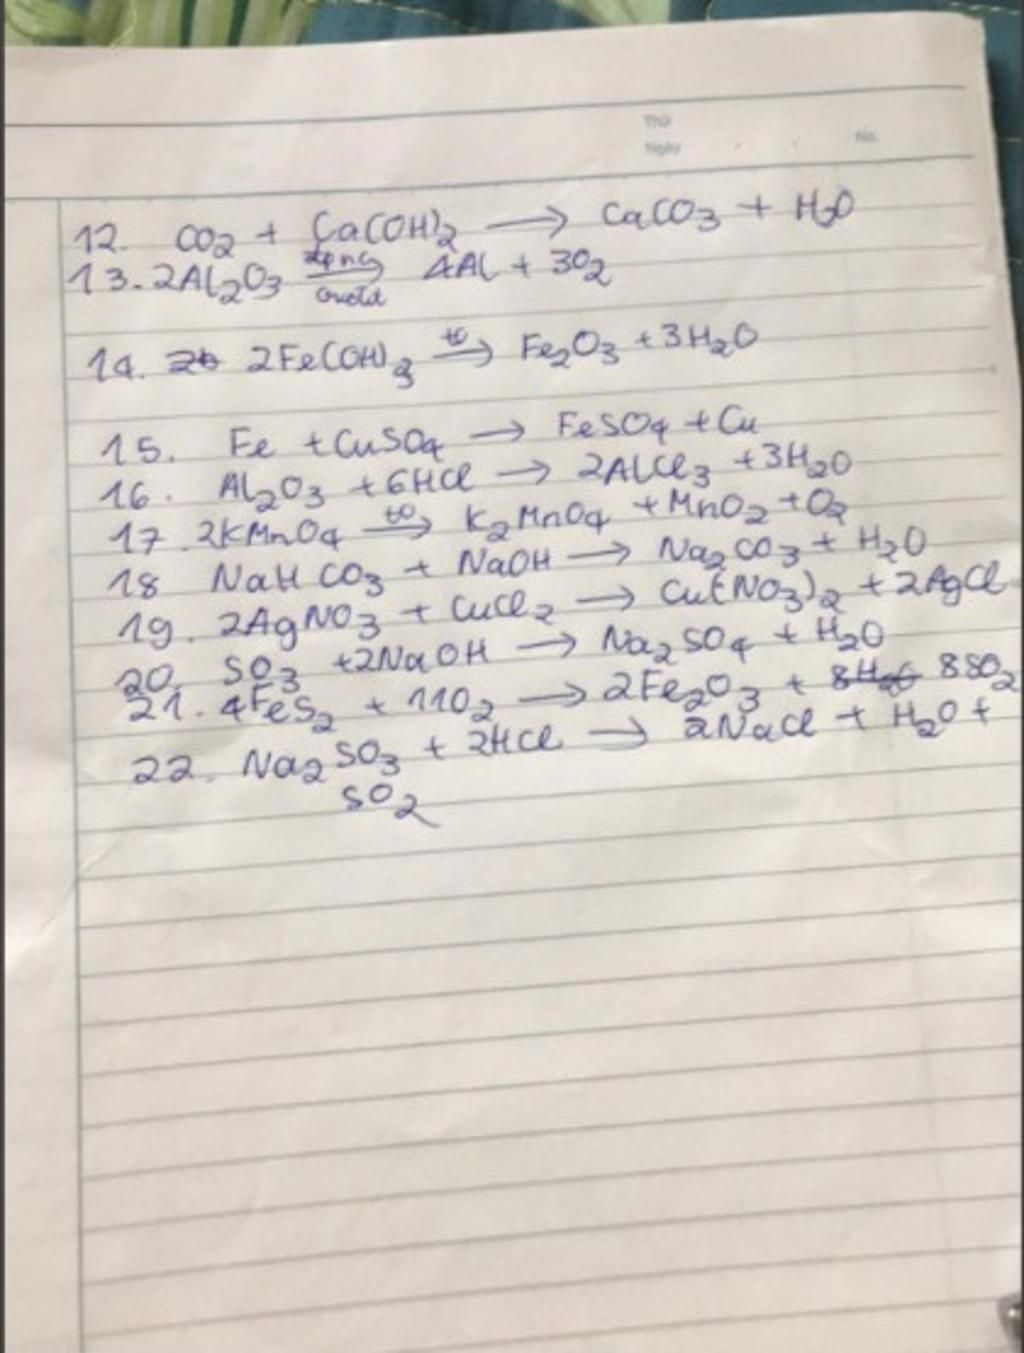 Thứ
Ngày No.
12. CO2 + Ca(OH)2 → CaCO3 + H2O
13. 2Al2O3 đpnc → criolit 4Al + 3O2
14. 2Fe(OH)3 to → Fe2O3 + 3H2O
15. Fe + CuSO4 → FeSO4 + Cu
16. Al2O3 + 6HCl → 2AlCl3 + 3H2O
17. 2KMnO4 to → K2MnO4 + MnO2 + O2
18 NaHCO3 + NaOH → Na2CO3 + H2O
19. 2AgNO3 + CuCl2 → Cu(NO3)2 + 2AgCl
20. SO3 + 2NaOH → Na2SO4 + H2O
21. 4FeS2 + 11O2 → 2Fe2O3 + 8SO2
22. Na2SO3 + 2HCl → 2NaCl + H2O +
SO2